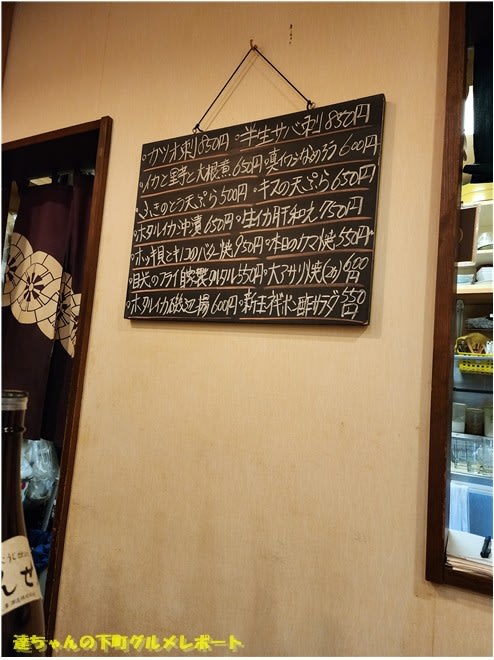 ・カツオ刺850円・半生サバ刺850円
・イカと里芋と大根煮650円・真イワシなめろう600円
・ふきのとう天ぷら500円・キスの天ぷら650円
・ホタルイカ沖漬650円・生イカ肝和え750円
・ホッキ貝とキノコのバター焼950円・本日のカマ焼550円
・自家製タルタル550円・大アサリ焼(2ヶ)600円
・ホタルイカ磯辺揚600円・新玉ネギポン酢サラダ550円
達ちゃんの下町グルメレポート